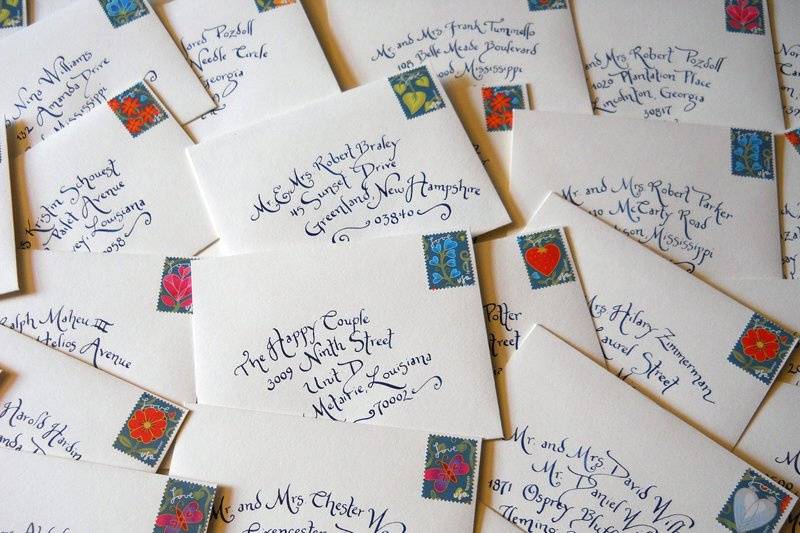 Nina Williams
132 Amanda Drive
Mississippi
Jared Pozdoll
Needle Circle
Georgia
Mr. and Mrs. Frank Tuminello
105 Belle Meade Boulevard
Mississippi
Mrs. Robert Pozdoll
1020 Plantation Place
Lincolnton, Georgia
30817
Kristin Schouest
Avenue
Louisiana
Mr. & Mrs. Robert Braley
45 Sunset Drive
Greenland, New Hampshire
03840
Mr. and Mrs. Robert Parker
McCarty Road
Mississippi
Ralph Maheu III
Helios Avenue
The Happy Couple
3009 Ninth Street
Unit D
Metairie, Louisiana
70002
Potter
Street
Mrs Hilary Zimmerman
Laurel Street
Harold Hardin
Mr. and Mrs. Chester
Mr. and Mrs. David
Mr. Daniel
1871 Osprey Bluff
Fleming